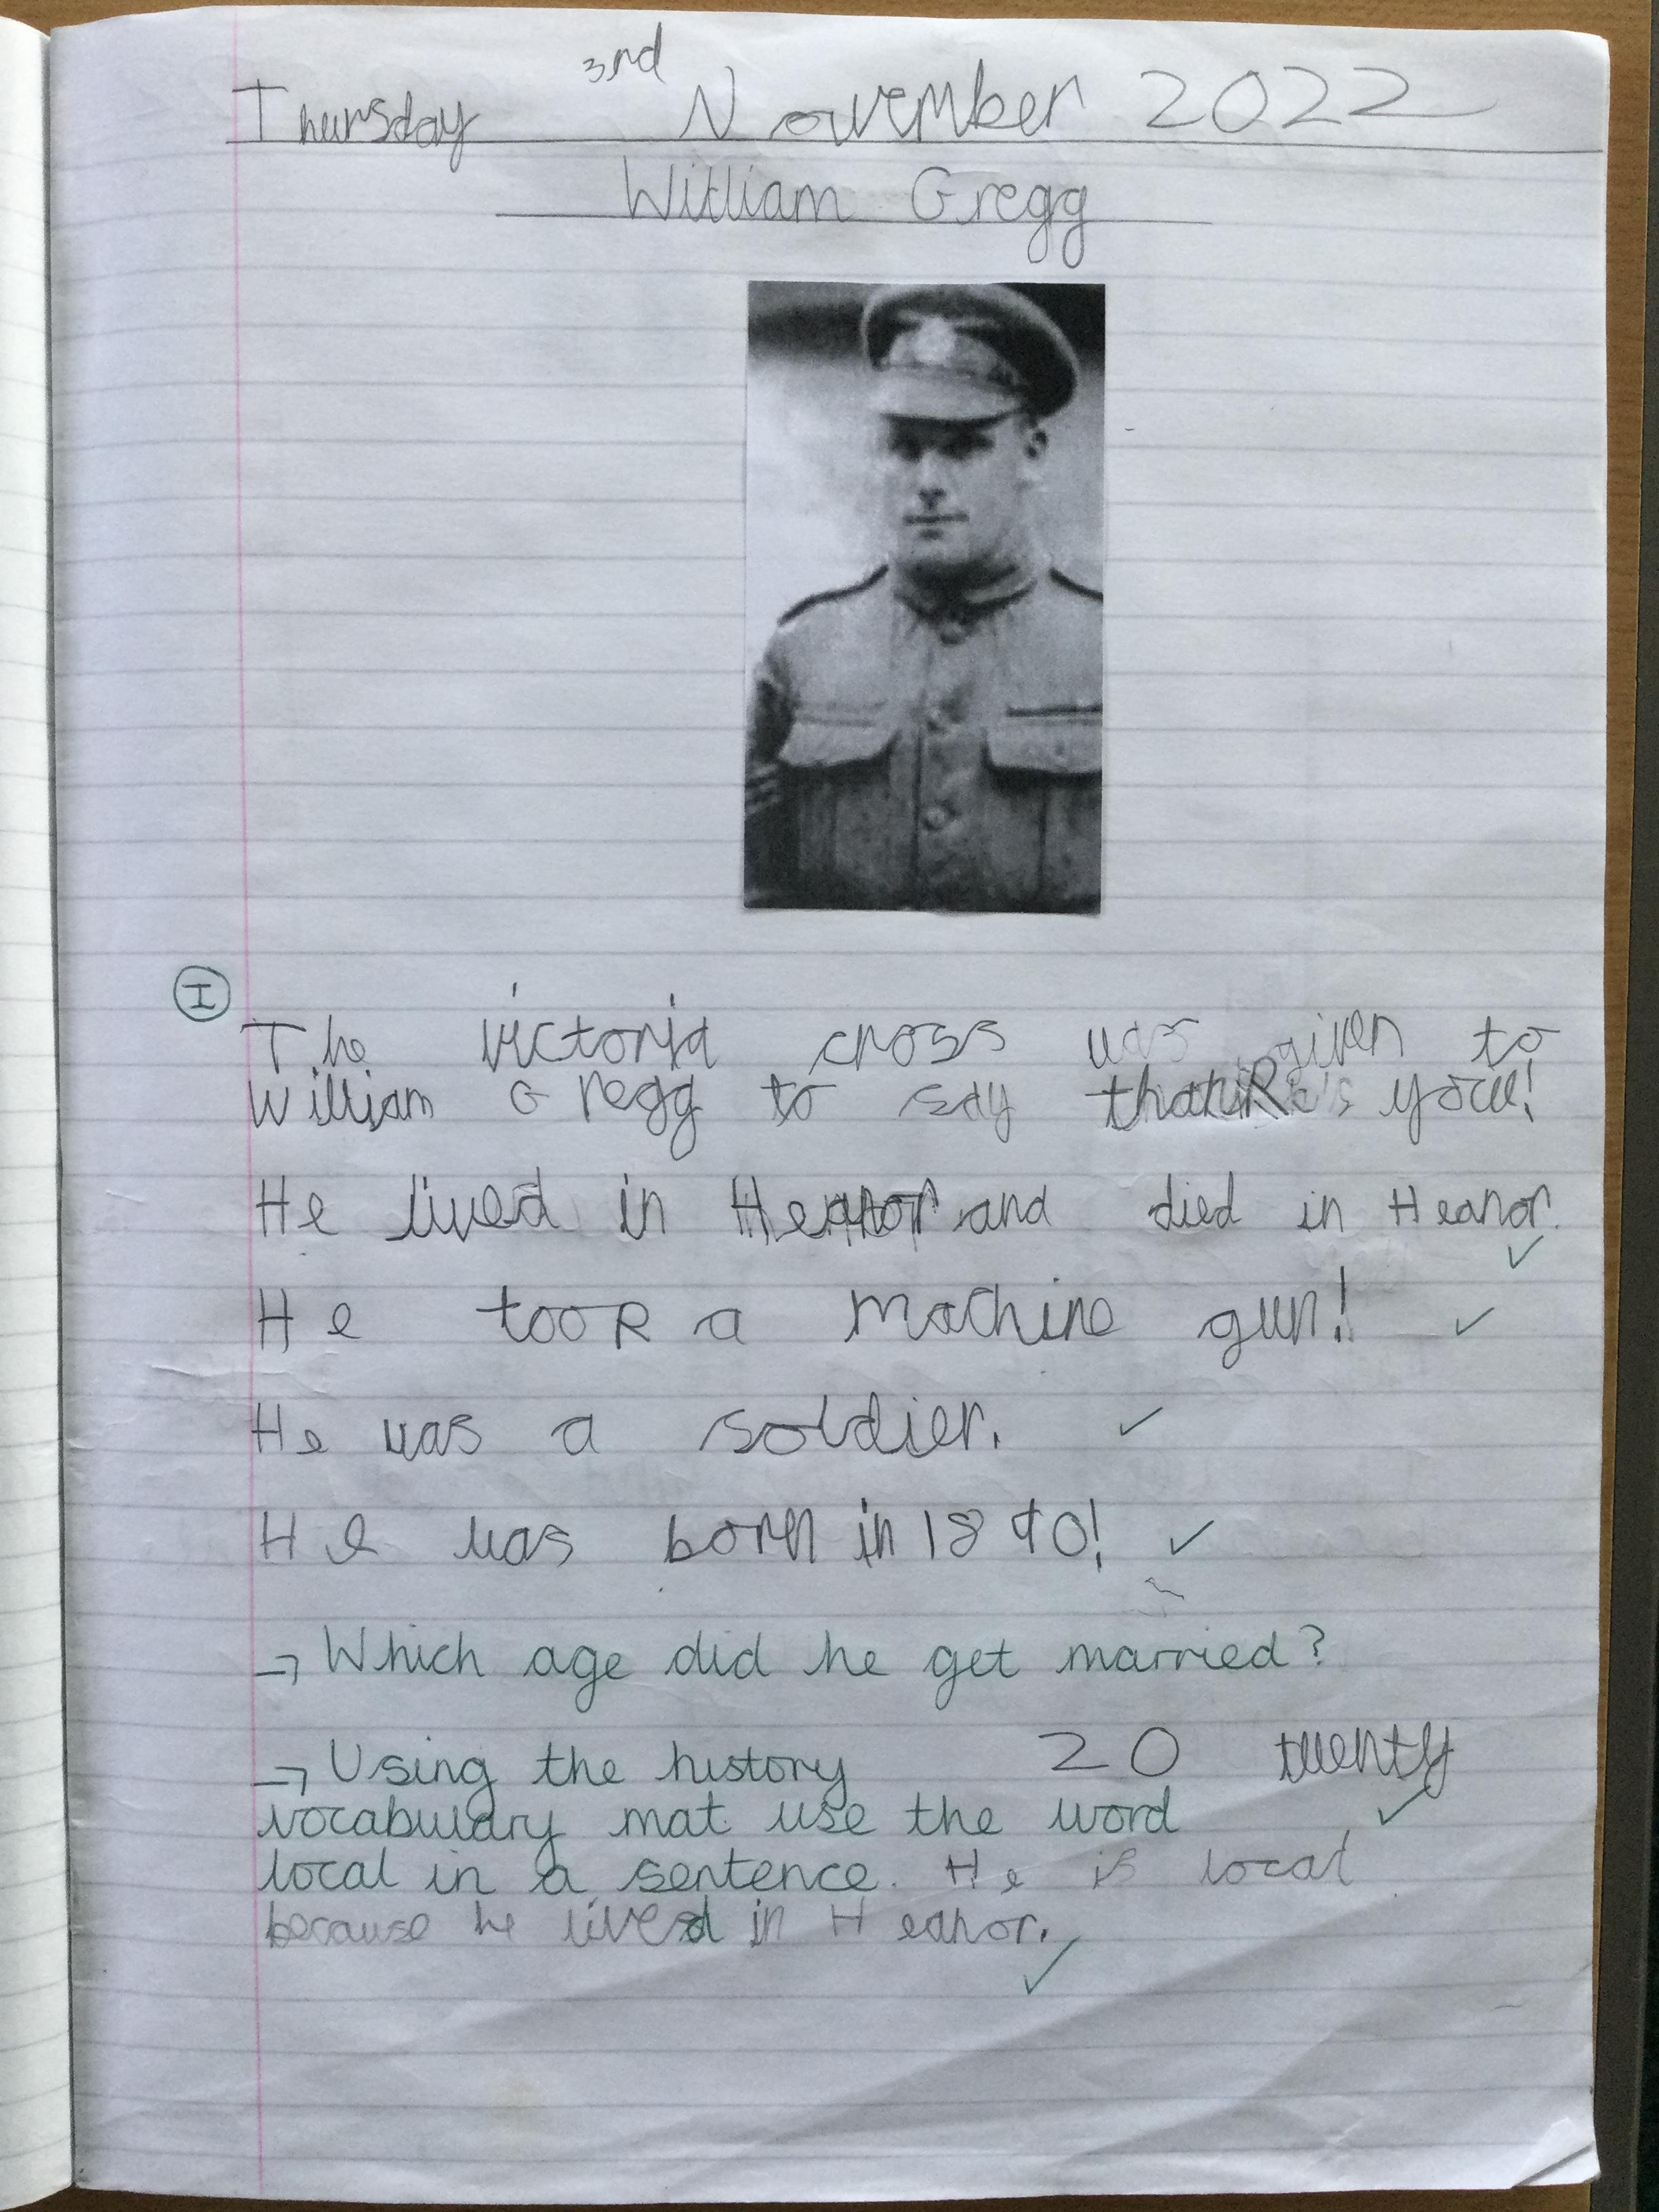 3rd
Thursday November 2022
William Gregg
I
The victoria cross was given to
William Gregg to say you!
He lived in Heanor and died in Heanor.
He took a machine gun!
He was a soldier.
He was born in 1890!
→ Which age did he get married?
→ Using the history 20 twenty
vocabulary mat use the word
local in a sentence. He is local
because he lived in Heanor.